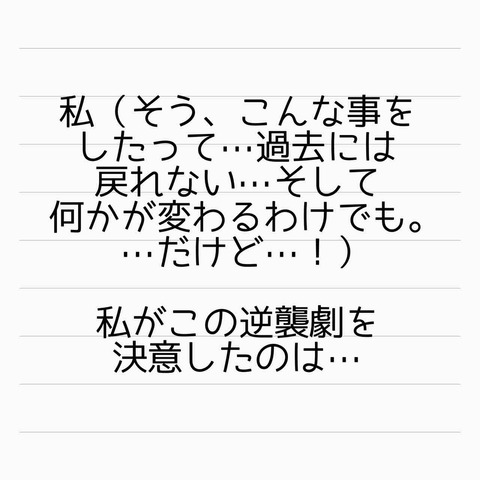 私（そう、こんな事を
したって…過去には
戻れない…そして
何かが変わるわけでも。
…だけど…！）
私がこの逆襲劇を
決意したのは…